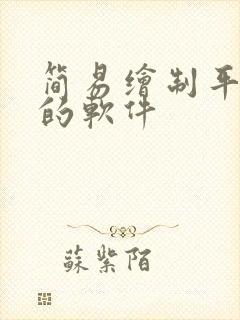 简易繪制平
的軟件
蘇紫陌